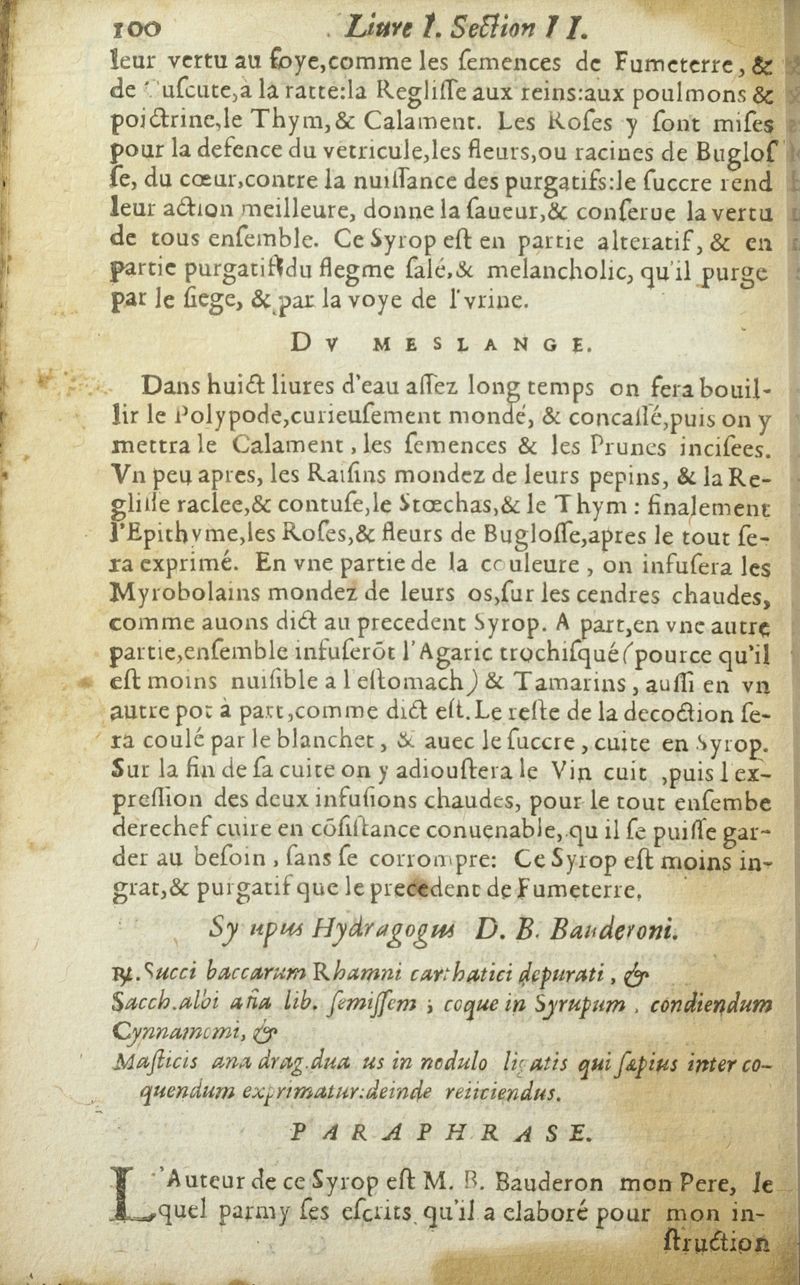 100 Liure I. Section II.
leur vertu au foye,comme les ſemences de Fumeterre, &
de Cuſcute,à la ratte:la Regliſſe aux reins:aux poulmons &
poictrine,le Thym,& Calament. Les Roſes y ſont miſes
pour la defence du vetricule,les fleurs,ou racines de Bugloſ
ſe, du cœur,contre la nuiſſance des purgatifs:le ſuccre rend
leur action meilleure, donne la faueur,& conſerue la vertu
de tous enſemble. Ce Syrop eſt en partie alteratif, & en
partie purgatif du flegme ſalé,& melancholic, qu'il purge
par le ſiege, & par la voye de l'vrine.
DV MESLANGE.
Dans huict liures d'eau aſſez long temps on fera bouil-
lir le Polypode,curieuſement mondé, & concaſſé,puis on y
mettra le Calament, les ſemences & les Prunes inciſees.
Vn peu apres, les Raiſins mondez de leurs pepins, & la Re-
gliſſe raclee,& contuſe,le Stœchas,& le Thym : finalement
l'Epithyme,les Roſes,& fleurs de Bugloſſe,apres le tout ſe-
ra exprimé. En vne partie de la couleure, on infuſera les
Myrobolains mondez de leurs os,ſur les cendres chaudes,
comme auons dict au precedent Syrop. A part,en vne autre
partie,enſemble infuſerōt l'Agaric trochiſqué (pource qu'il
eſt moins nuiſible a l'eſtomach) & Tamarins, auſſi en vn
autre pot à part,comme dict eſt. Le reſte de la decoction ſe-
ra coulé par le blanchet, & auec le ſuccre, cuite en Syrop.
Sur la fin de ſa cuite on y adiouſtera le Vin cuit ,puis l'ex-
preſſion des deux infuſions chaudes, pour le tout enſembe
derechef cuire en cōſiſtance conuenable, qu'il ſe puiſſe gar-
der au beſoin, ſans ſe corrompre: Ce Syrop eſt moins in-
grat,& purgatif que le precedent de Fumeterre.
Syrupus Hydragogus D. B. Bauderoni.
℞. Succi baccarum Rhamni carthatici depurati, &
Sacch.albi aña lib. ſemiſſem ; coque in Syrupum, condiendum
Cynnamomi, &
Maſticis ana drag.dua us in nodulo ligatis qui ſæpius inter co-
quendum exprimatur:deinde reiiciendus.
PARAPHRASE.
L'Auteur de ce Syrop eſt M. B. Bauderon mon Pere, le
quel parmy ſes eſcrits qu'il a elaboré pour mon in-
ſtruction